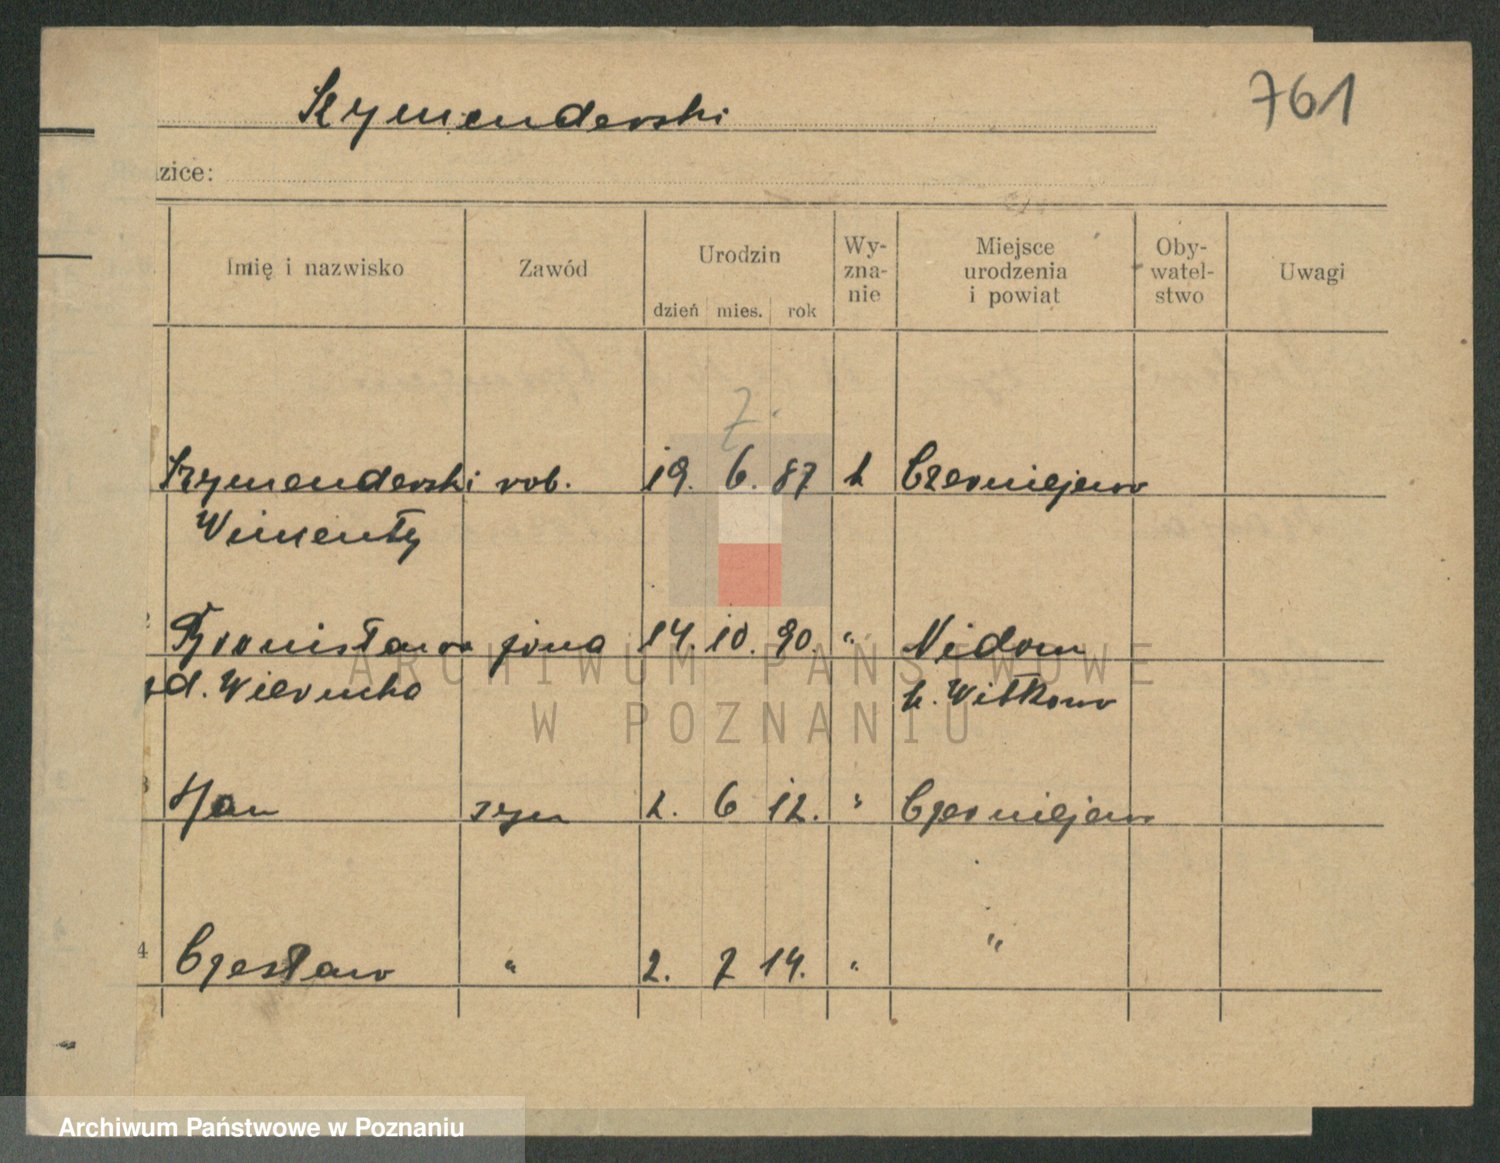 Szymenderski
761
zice:
Imię i nazwisko
Zawód
Urodzin
dzień mies. rok
Wy-
zna-
nie
Miejsce
urodzenia
i powiat
Oby-
watel-
stwo
Uwagi
7.
Szymenderski rob. 19. 6. 87 k Czerniejewo
Wincenty
2 Bronisława żona 14. 10. 90. " Nidom
d. Wierucka k. Witkowo
3 Jan syn 2. 6 12. " Czerniejewo
4 Czesław " 2. 7 14. " "
ARCHIWUM PAŃSTWOWE
W POZNANIU
Archiwum Państwowe w Poznaniu